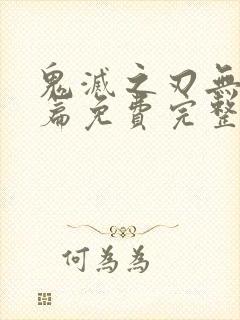 鬼滅之刃無
篇免費完整
何為為